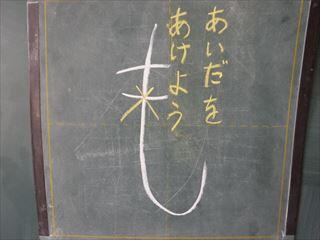 あいだを
あけよう
も